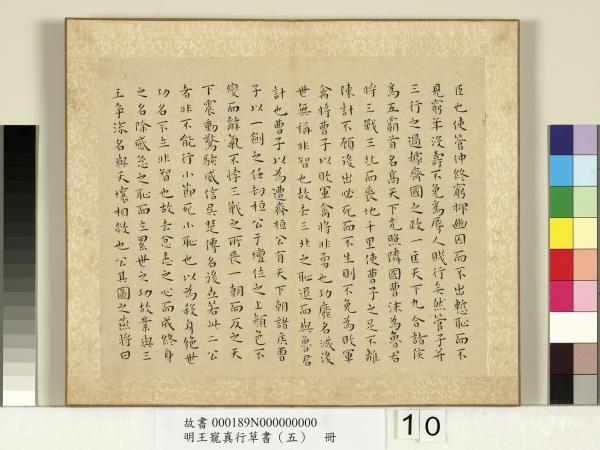 臣也使管仲終窮抑幽囚而不出慙恥而不
見窮年沒壽不免為辱人賤行矣然管子并
三行之過據齊國之政一匡天下九合諸侯
為五霸首名高天下光照隣國曹沫為魯君
將三戰三北而喪地千里使曹子之足不離
陳計不顧後出必死而不生則不免為敗軍
禽將曹子以敗軍禽將非勇也功廢名滅後
世無稱非智也故去三北之恥退而與魯君
計也曹子以為遭齊桓公有天下朝諸侯曹
子以一劍之任劫桓公于壇位之上顏色不
變而辭氣不悖三戰之所喪一朝而反之天
下震動驚駭威信吳楚傳名後世若此二公
者非不能行小節死小恥也以為殺身絕世
功名不立非智也故去忿恚之心而成終身
之名除感忿之恥而立累世之功故業與三
王爭流名與天壤相敝也公其圖之燕將曰
故書 000189N000000000
明王寵真行草書（五） 冊
10